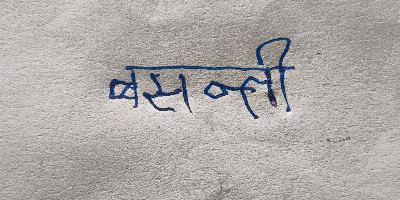 बसन्ती